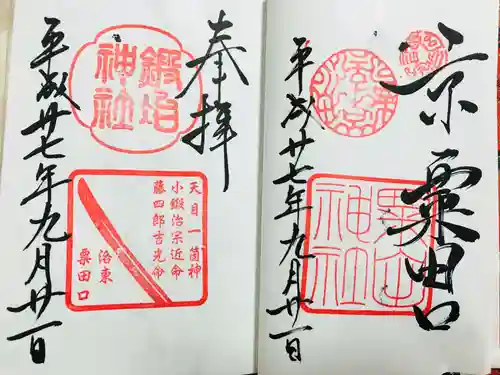 京 粟田口
粟田
神社
平成廿七年九月廿一日
奉拝
鍛冶
神社
天目一箇神
小鍛治宗近命
藤四郎吉光命
洛東
粟田口
平成廿七年九月廿一日